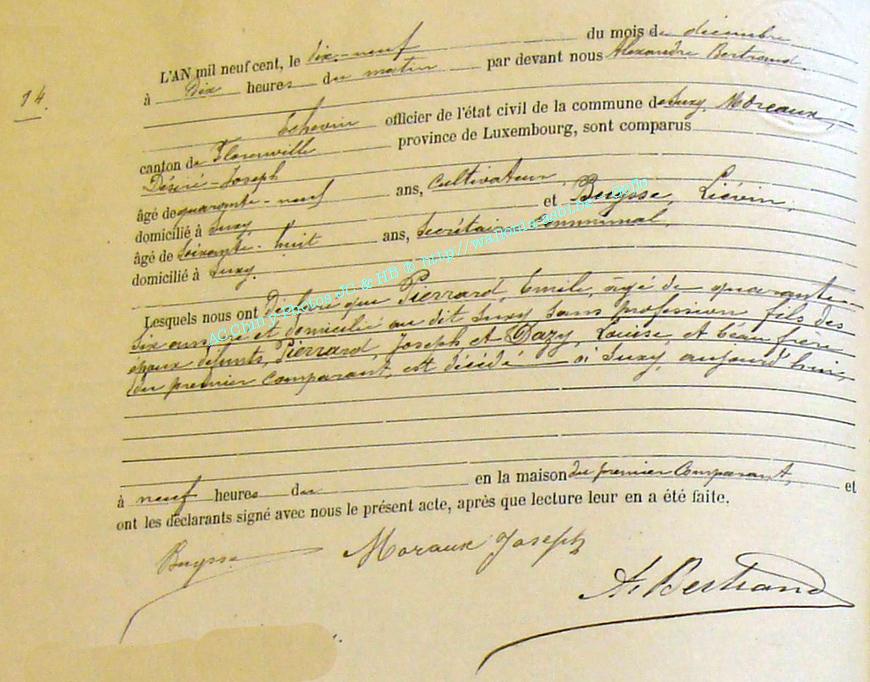 14.
L'AN mil neuf cent, le dix-neuf du mois de décembre
à dix heures du matin par devant nous Alexandre Bertrand
Echevin officier de l'état civil de la commune de Suxy, Moreaux,
canton de Florenville province de Luxembourg, sont comparus
Désiré-Joseph
âgé de quarante-neuf ans, Cultivateur
domicilié à Suxy et Buysse, Liévin,
âgé de Soixante-huit ans, Secrétaire Communal,
domicilié à Suxy.
Lesquels nous ont déclaré que Pierrard, Emile, âgé de quarante-
six ans né et domicilié au dit Suxy Sans profession fils des
époux défunts, Pierrard, Joseph et Dazy, Louise, et beau frère
du premier Comparant, est décédé à Suxy, aujourd'hui,
à neuf heures du en la maison du premier Comparant, et
ont les déclarants signé avec nous le présent acte, après que lecture leur en a été faite.
Buysse Moraux Joseph
A. Bertrand
AC Chiny Photos JC & HB © http://